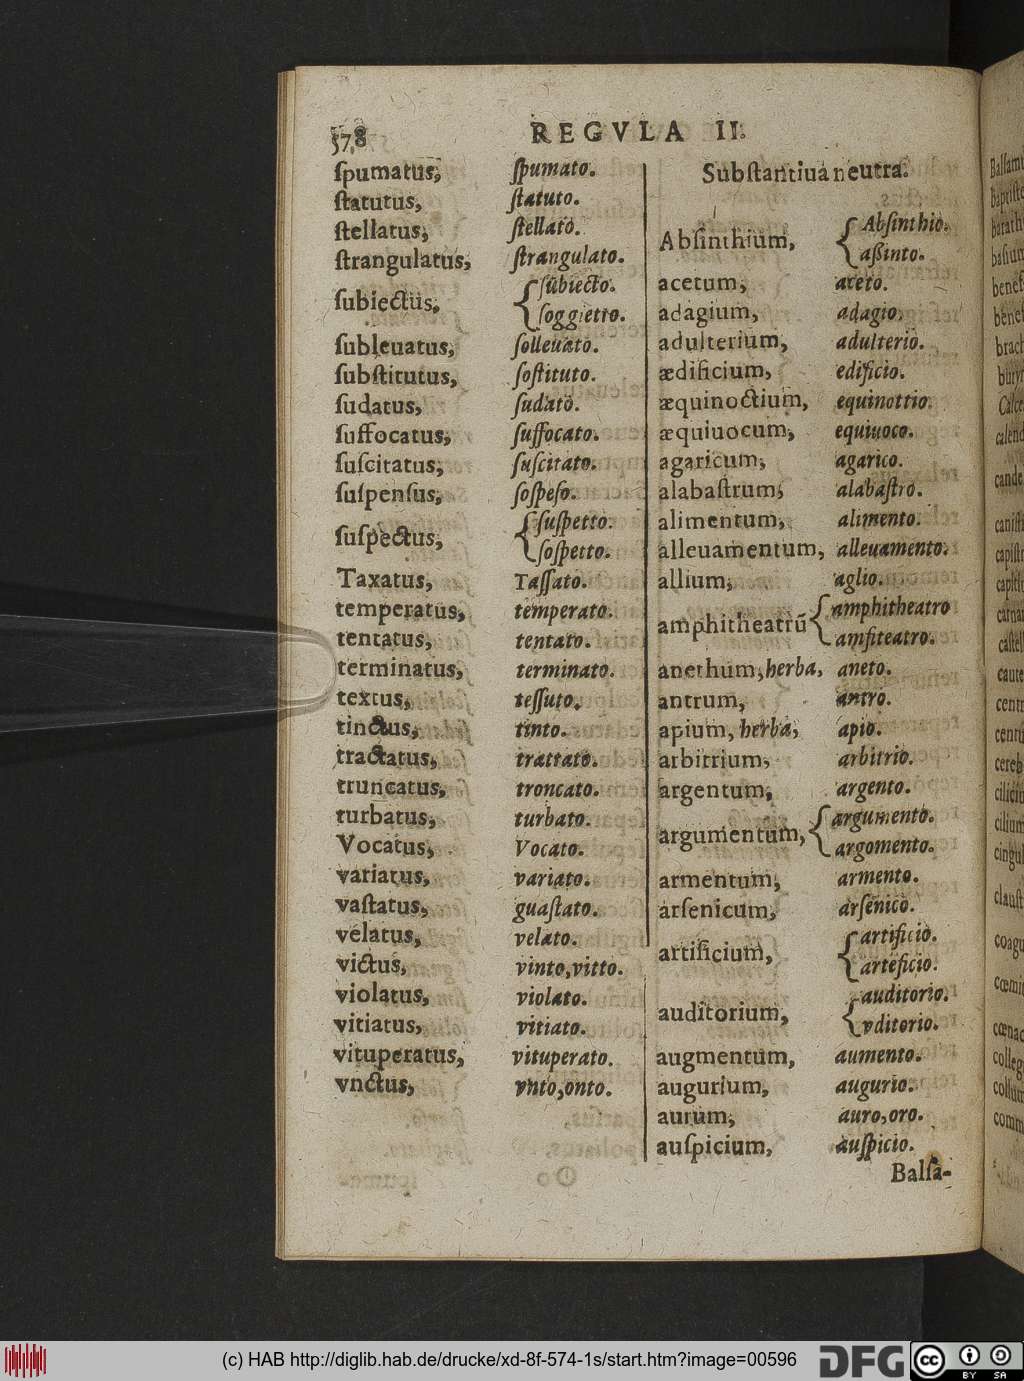 578 REGVLA II.
ſpumatus, ſpumato.
ſtatutus, ſtatuto.
ſtellatus, ſtellato.
ſtrangulatus, ſtrangulato.
ſubiectus, { ſubiecto.
ſoggietto.
ſubleuatus, ſolleuato.
ſubſtitutus, ſoſtituto.
ſudatus, ſudato.
ſuffocatus, ſuffocato.
ſuſcitatus, ſuſcitato.
ſuſpenſus, ſoſpeſo.
ſuſpectus, { ſuſpetto.
ſoſpetto.
Taxatus, Taſſato.
temperatus, temperato.
tentatus, tentato.
terminatus, terminato.
textus, teſſuto.
tinctus, tinto.
tractatus, trattato.
truncatus, troncato.
turbatus, turbato.
Vocatus, Vocato.
variatus, variato.
vaſtatus, guaſtato.
velatus, velato.
victus, vinto, vitto.
violatus, violato.
vitiatus, vitiato.
vituperatus, vituperato.
vnctus, vnto, onto.
Subſtantiua neutra.
Abſinthium, { Abſinthio.
aßinto.
acetum, aceto.
adagium, adagio.
adulterium, adulterio.
ædificium, edificio.
æquinoctium, equinottio.
æquiuocum, equiuoco.
agaricum, agarico.
alabaſtrum, alabaſtro.
alimentum, alimento.
alleuamentum, alleuamento.
allium, aglio.
amphitheatrũ { amphitheatro
amfiteatro.
anethum, herba, aneto.
antrum, antro.
apium, herba, apio.
arbitrium, arbitrio.
argentum, argento.
argumentum, { argumento.
argomento.
armentum, armento.
arſenicum, arſenico.
artificium, { artificio.
arteficio.
auditorium, { auditorio.
vditorio.
augmentum, aumento.
augurium, augurio.
aurum, auro, oro.
auſpicium, auſpicio.
Balſa-
(c) HAB http://diglib.hab.de/drucke/xd-8f-574-1s/start.htm?image=00596
DFG
cc BY SA